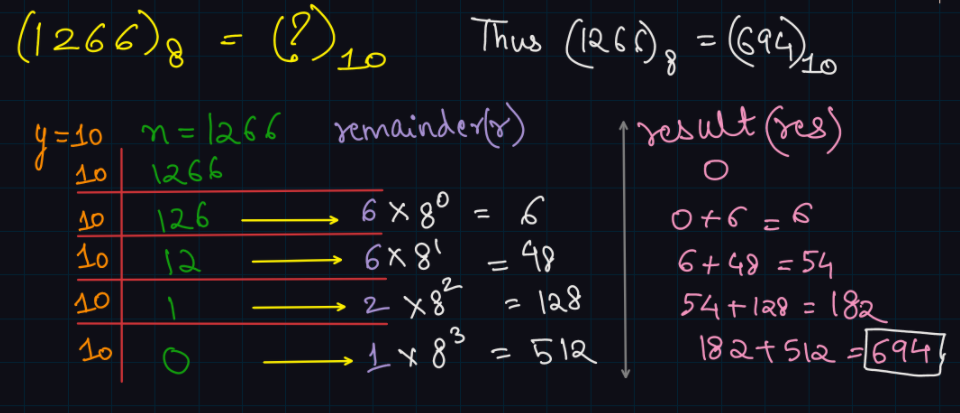 (1266)₈ = (?)₁₀ Thus (1266)₈ = (694)₁₀
y=10 n=1266 remainder(r) result(res)
10 1266 0
10 126 → 6 × 8⁰ = 6 0+6 = 6
10 12 → 6 × 8¹ = 48 6+48 = 54
10 1 → 2 × 8² = 128 54+128 = 182
10 0 → 1 × 8³ = 512 182+512 = 694